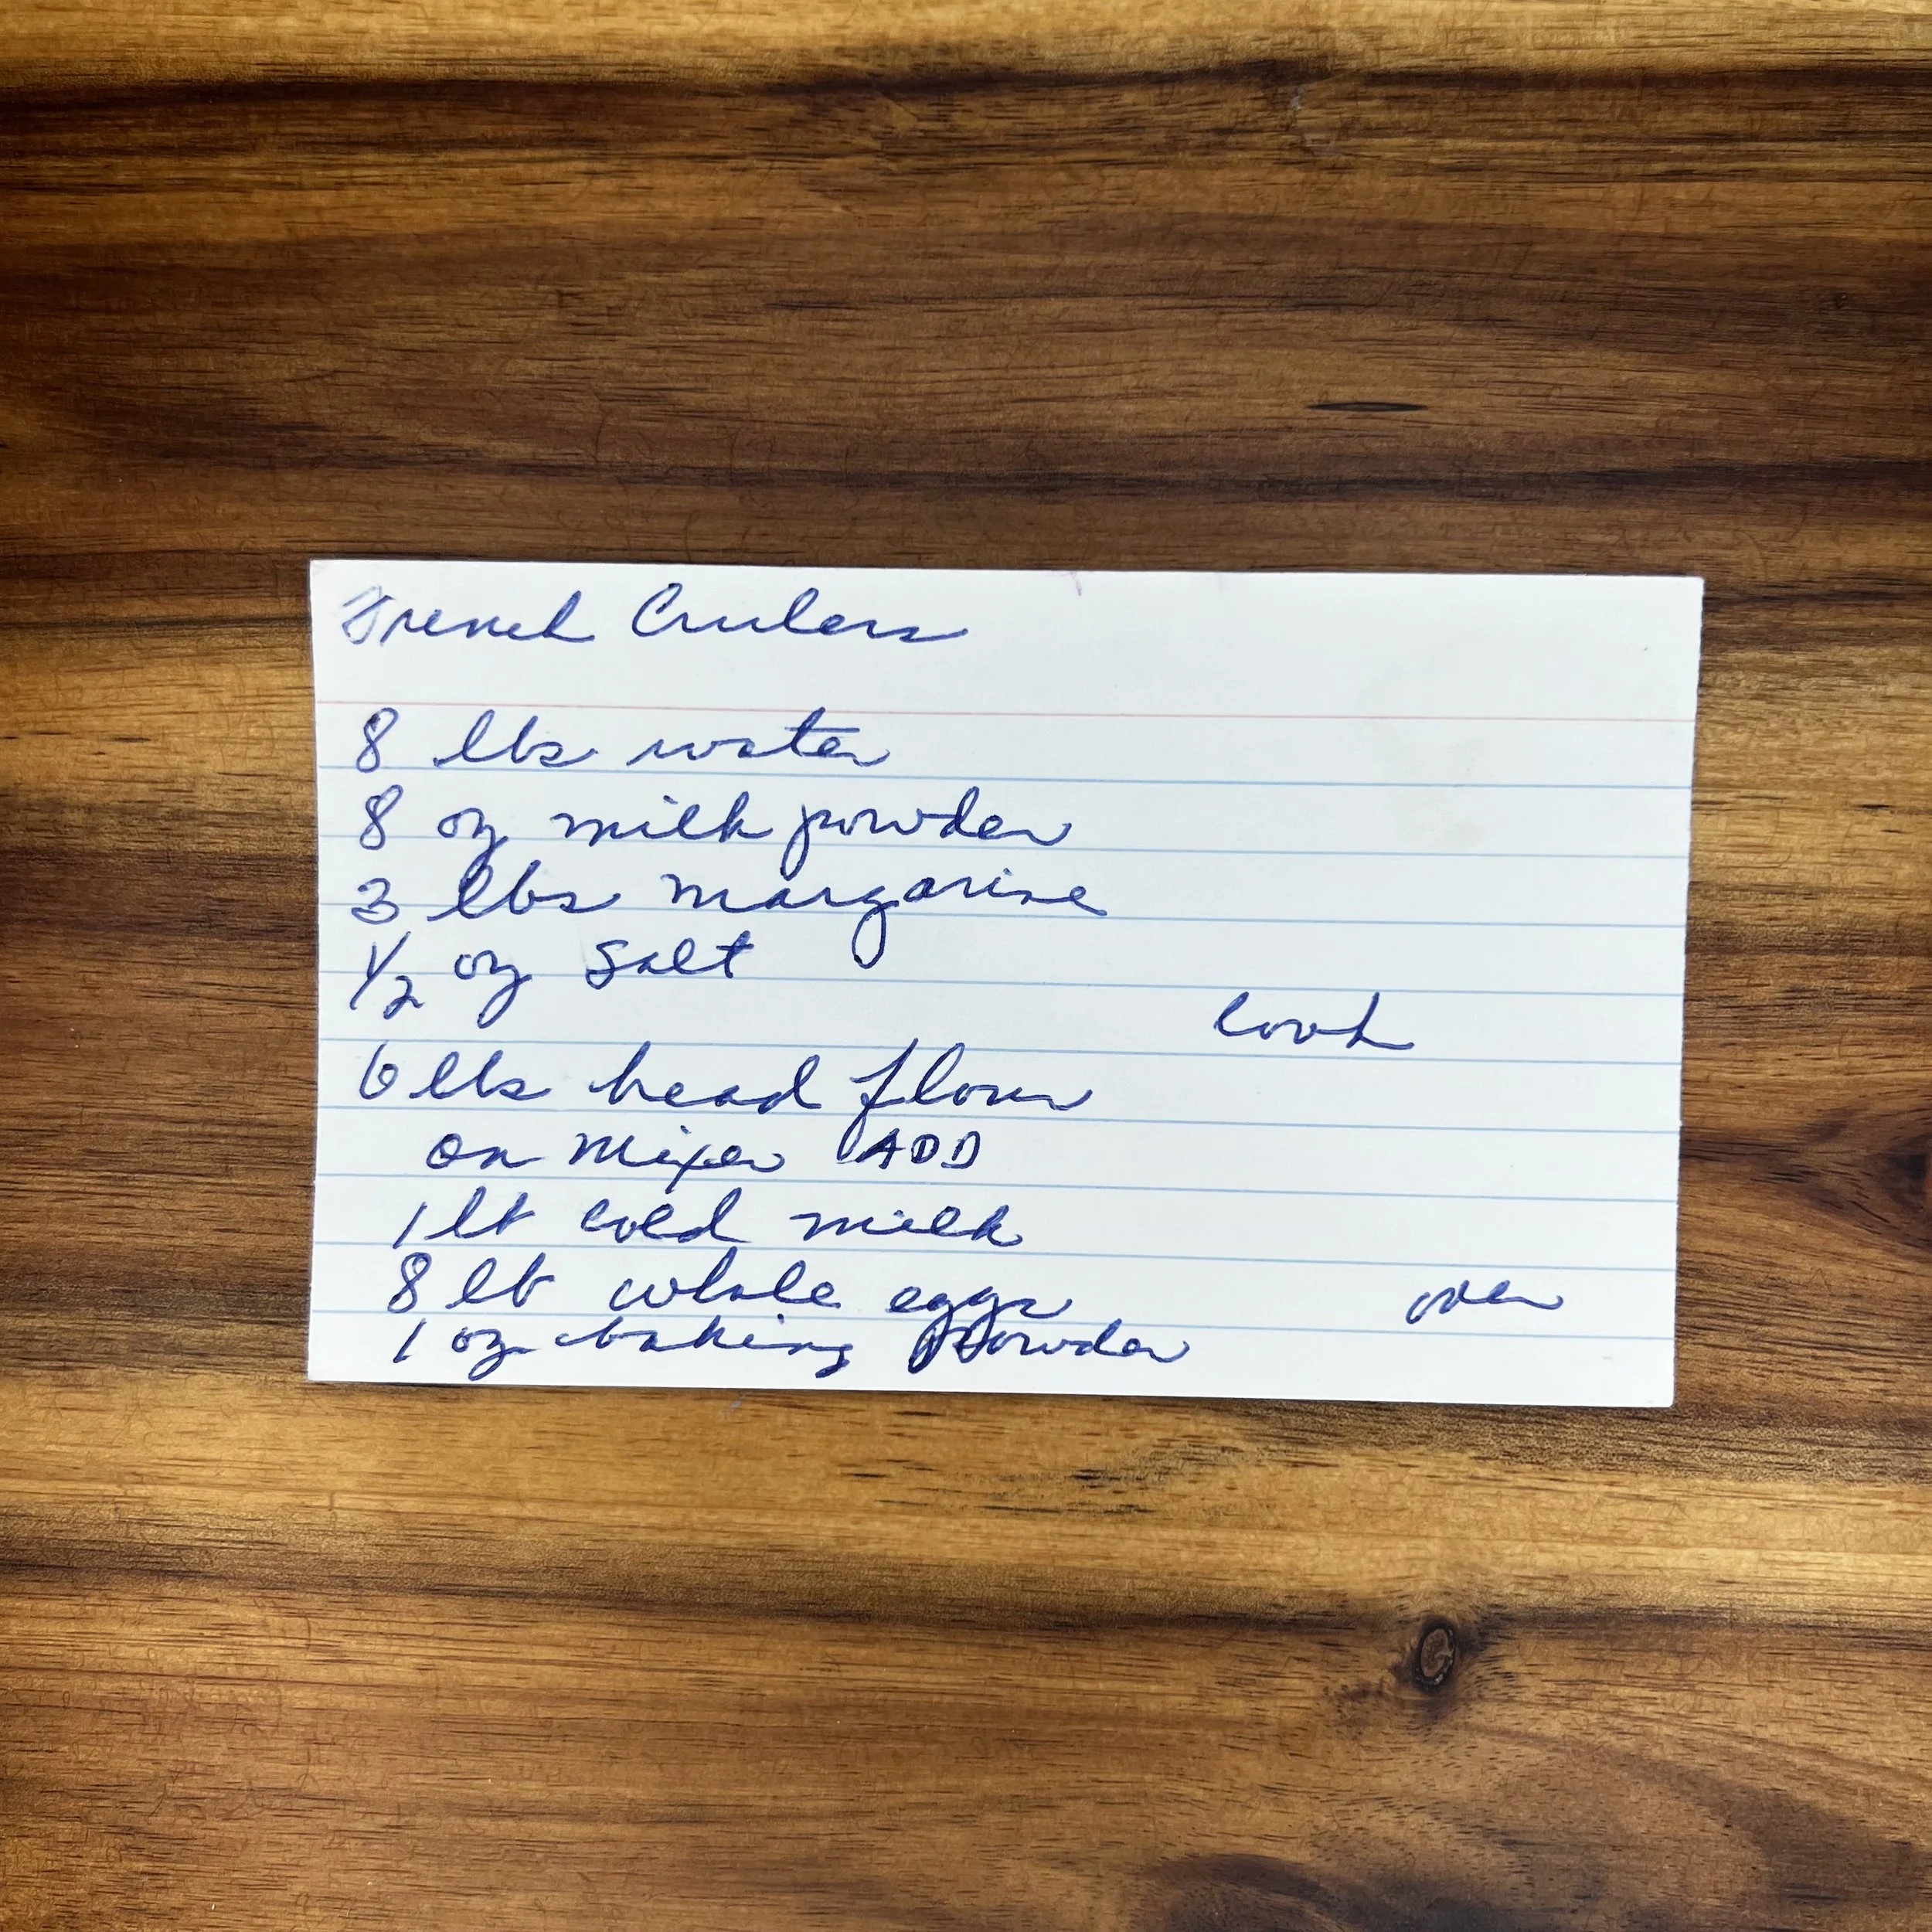 French Crulers
8 lbs water
8 oz milk powder
3 lbs margarine
1/2 oz Salt
cook
6 lbs bread flour
on mixer ADD
1 lb cold milk
8 lb whole eggs
over
1 oz baking powder